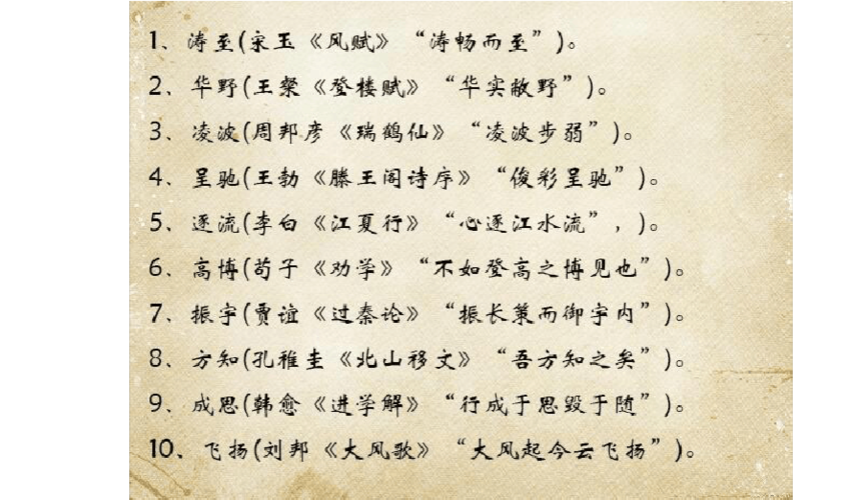 1、涛至(宋玉《风赋》“涛畅而至”)。
2、华野(王粲《登楼赋》“华实敝野”)。
3、凌波(周邦彦《瑞鹤仙》“凌波步弱”)。
4、呈驰(王勃《滕王阁诗序》“俊彩呈驰”)。
5、逐流(李白《江夏行》“心逐江水流”,)。
6、高博(荀子《劝学》“不如登高之博见也”)。
7、振宇(贾谊《过秦论》“振长策而御宇内”)。
8、方知(孔稚圭《北山移文》“吾方知之矣”)。
9、成思(韩愈《进学解》“行成于思毁于随”)。
10、飞扬(刘邦《大风歌》“大风起今云飞扬”)。